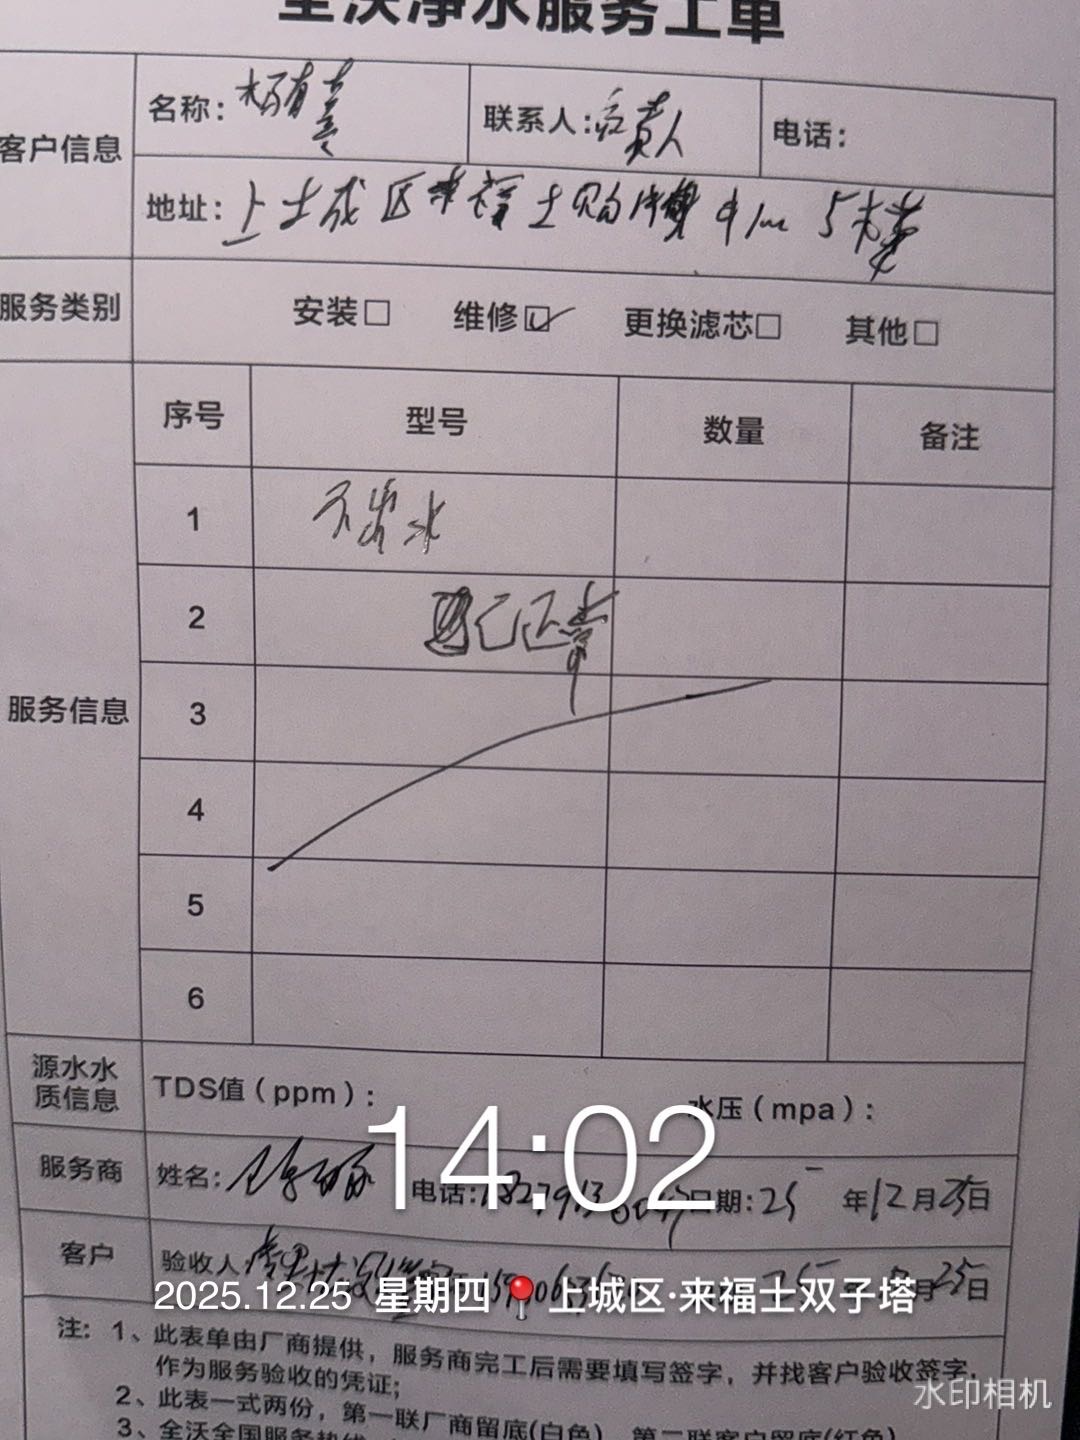 全沃净水服务工单
客户信息
名称：杨有善 联系人：负责人 电话：
地址：上城区来福士购物中心5楼
服务类别 安装□ 维修☑ 更换滤芯□ 其他□
服务信息
序号 型号 数量 备注
1 不出水
2 已正常
3
4
5
6
源水水质信息 TDS值（ppm）： 水压（mpa）：
14:02
服务商 姓名： 电话： 日期：25年12月25日
客户 验收人 月25日
2025.12.25 星期四 上城区·来福士双子塔
注：1、此表单由厂商提供，服务商完工后需要填写签字，并找客户验收签字，
作为服务验收的凭证；
2、此表一式两份，第一联厂商留底(白色)，第二联客户留底(红色)
3、全沃全国服务热线
水印相机